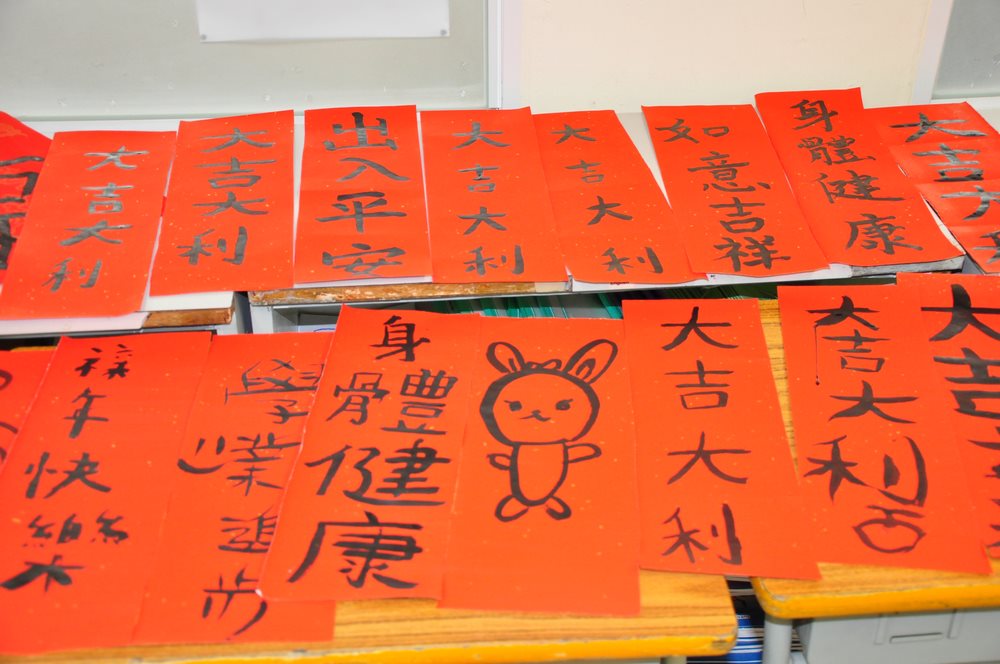 大吉大利
大吉大利
出入平安
大吉大利
大吉大利
如意吉祥
身體健康
大吉大
年快樂
學業進步
身體健康
大吉大利
大吉大利
大吉